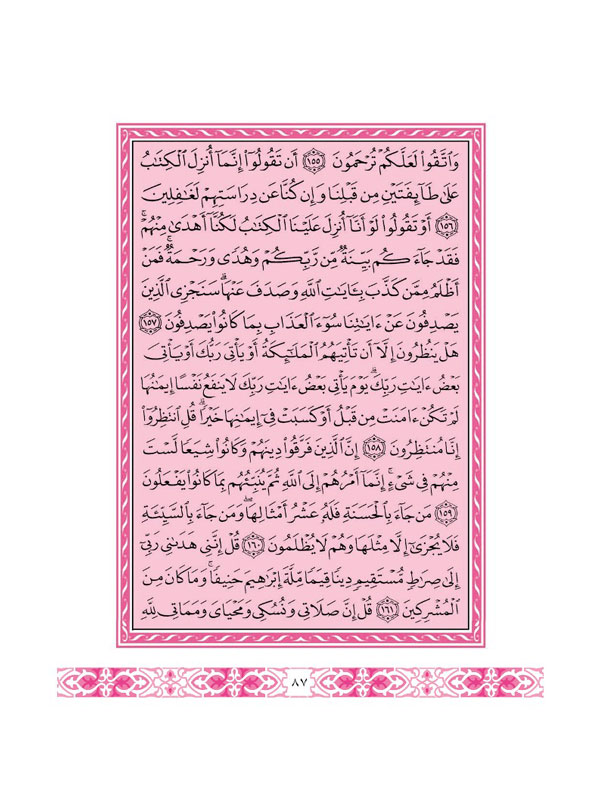 وَٱتَّقُوا۟ لَعَلَّكُمْ تُرْحَمُونَ ١٥٥ أَن تَقُولُوٓا۟ إِنَّمَآ أُنزِلَ ٱلْكِتَـٰبُ
عَلَىٰ طَآئِفَتَيْنِ مِن قَبْلِنَا وَإِن كُنَّا عَن دِرَاسَتِهِمْ لَغَـٰفِلِينَ
١٥٦ أَوْ تَقُولُوا۟ لَوْ أَنَّآ أُنزِلَ عَلَيْنَا ٱلْكِتَـٰبُ لَكُنَّآ أَهْدَىٰ مِنْهُمْ ۚ
فَقَدْ جَآءَكُم بَيِّنَةٌ مِّن رَّبِّكُمْ وَهُدًى وَرَحْمَةٌ ۚ فَمَنْ
أَظْلَمُ مِمَّن كَذَّبَ بِـَٔايَـٰتِ ٱللَّهِ وَصَدَفَ عَنْهَا ۗ سَنَجْزِى ٱلَّذِينَ
يَصْدِفُونَ عَنْ ءَايَـٰتِنَا سُوٓءَ ٱلْعَذَابِ بِمَا كَانُوا۟ يَصْدِفُونَ ١٥٧
هَلْ يَنظُرُونَ إِلَّآ أَن تَأْتِيَهُمُ ٱلْمَلَـٰٓئِكَةُ أَوْ يَأْتِىَ رَبُّكَ أَوْ يَأْتِىَ
بَعْضُ ءَايَـٰتِ رَبِّكَ ۗ يَوْمَ يَأْتِى بَعْضُ ءَايَـٰتِ رَبِّكَ لَا يَنفَعُ نَفْسًا إِيمَـٰنُهَا
لَمْ تَكُنْ ءَامَنَتْ مِن قَبْلُ أَوْ كَسَبَتْ فِىٓ إِيمَـٰنِهَا خَيْرًا ۗ قُلِ ٱنتَظِرُوٓا۟
إِنَّا مُنتَظِرُونَ ١٥٨ إِنَّ ٱلَّذِينَ فَرَّقُوا۟ دِينَهُمْ وَكَانُوا۟ شِيَعًا لَّسْتَ
مِنْهُمْ فِى شَىْءٍ ۚ إِنَّمَآ أَمْرُهُمْ إِلَى ٱللَّهِ ثُمَّ يُنَبِّئُهُم بِمَا كَانُوا۟ يَفْعَلُونَ
١٥٩ مَن جَآءَ بِٱلْحَسَنَةِ فَلَهُۥ عَشْرُ أَمْثَالِهَا ۖ وَمَن جَآءَ بِٱلسَّيِّئَةِ
فَلَا يُجْزَىٰٓ إِلَّا مِثْلَهَا وَهُمْ لَا يُظْلَمُونَ ١٦٠ قُلْ إِنَّنِى هَدَىٰنِى رَبِّىٓ
إِلَىٰ صِرَٰطٍ مُّسْتَقِيمٍ دِينًا قِيَمًا مِّلَّةَ إِبْرَٰهِيمَ حَنِيفًا ۚ وَمَا كَانَ مِنَ
ٱلْمُشْرِكِينَ ١٦١ قُلْ إِنَّ صَلَاتِى وَنُسُكِى وَمَحْيَاىَ وَمَمَاتِى لِلَّهِ
٨٧